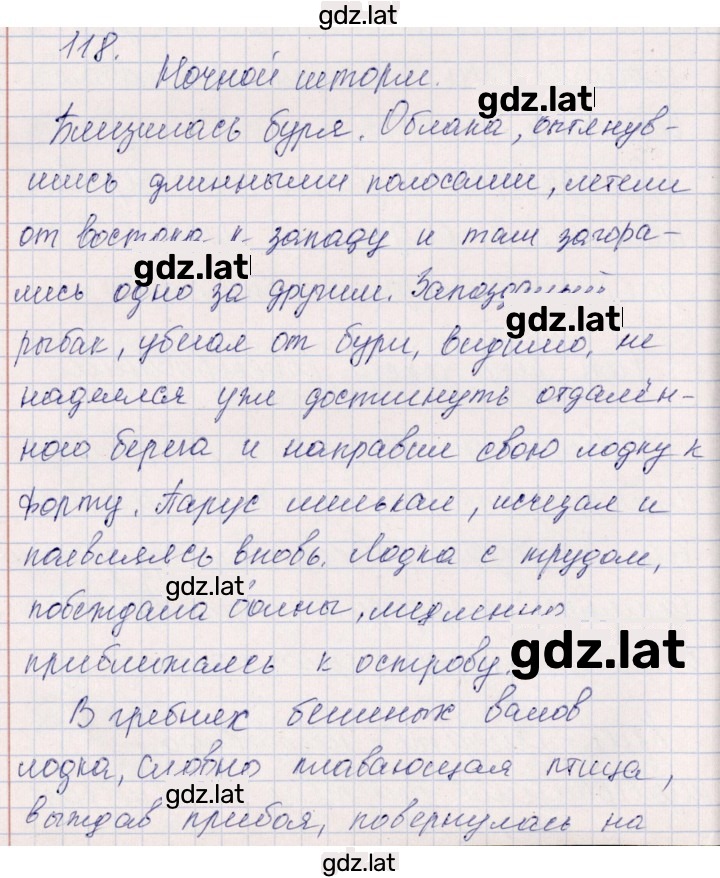 gdz.lat
118.
Ночной шторм.
gdz.lat
Близилась буря. Облака, вытянув-
шись длинными полосами, летели
от востока к западу и там загора-
gdz.lat
лись одно за другим. Запоздалый
gdz.lat
рыбак, убегая от бури, видимо, не
надеялся уже достигнуть отдалён-
ного берега и направил свою лодку к
форту. Парус мелькал, исчезал и
появлялся вновь. Лодка с трудом,
gdz.lat
побеждала волны, медленно
приближаясь к острову.
gdz.lat
В гребнях бешеных валов
лодка, словно плавающая птица,
gdz.lat
выждав прибоя, повернулась на
gdz.lat